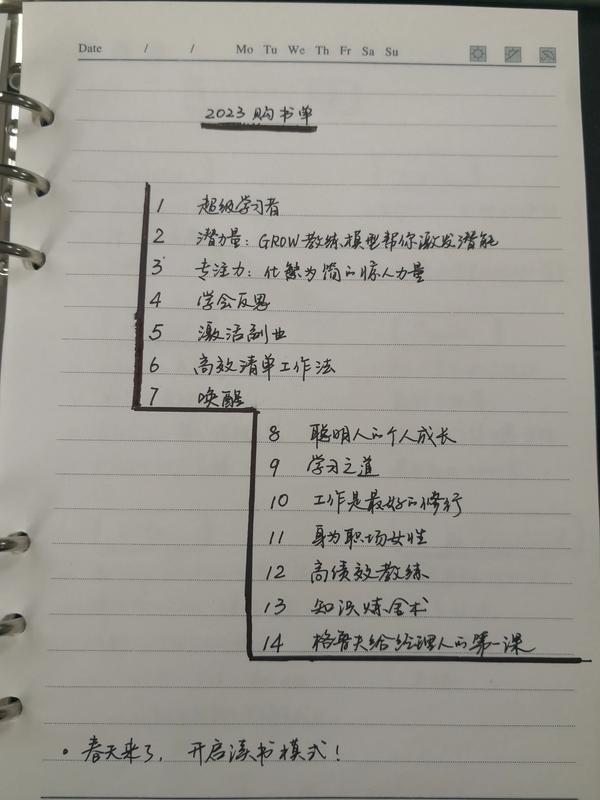 Date / / Mo Tu We Th Fr Sa Su
2023购书单
1 超级学习者
2 潜力量：GROW教练模型帮你激发潜能
3 专注力：化繁为简的惊人力量
4 学会反思
5 激活副业
6 高效清单工作法
7 唤醒
8 聪明人的个人成长
9 学习之道
10 工作是最好的修行
11 身为职场女性
12 高绩效教练
13 知识炼金术
14 格鲁夫给经理人的第一课
· 春天来了，开启读书模式！